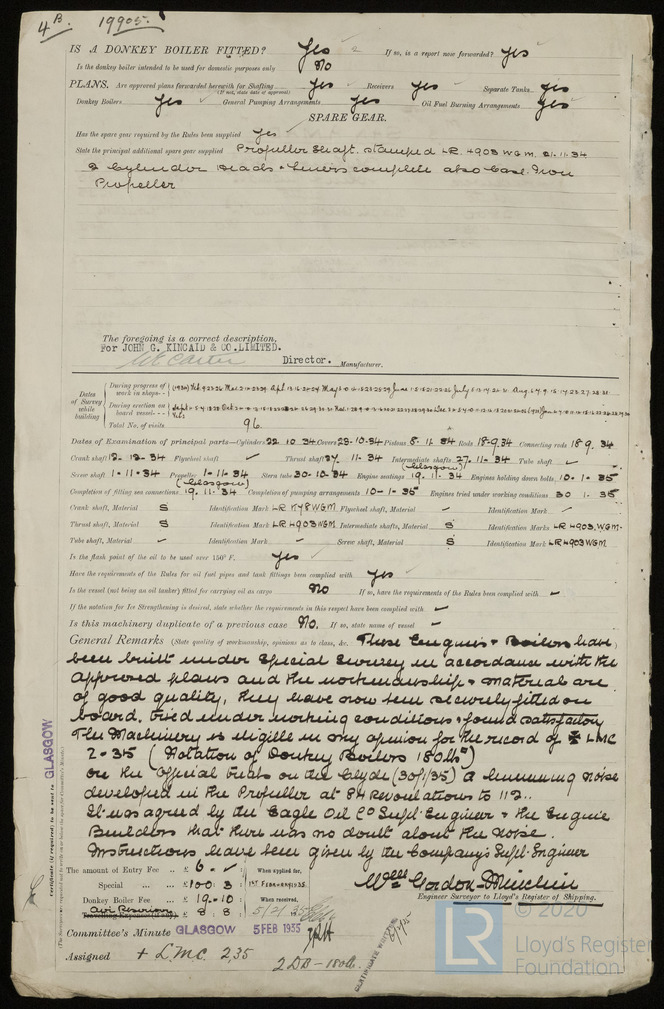 4B. 19905.
IS A DONKEY BOILER FITTED? Yes If so, is a report now forwarded? Yes
Is the donkey boiler intended to be used for domestic purposes only No
PLANS. Are approved plans forwarded herewith for Shafting Yes Receivers Yes Separate Tanks Yes
(If not, state date of approval)
Donkey Boilers Yes General Pumping Arrangements Yes Oil Fuel Burning Arrangements Yes
SPARE GEAR.
Has the spare gear required by the Rules been supplied Yes
State the principal additional spare gear supplied Propeller Shaft stamped LR 4903 WGM. 21.11.34
2 Cylinder Heads & Liners complete also Cast Iron
Propeller
The foregoing is a correct description,
For JOHN G. KINCAID & CO. LIMITED.
Director. Manufacturer.
Dates of Survey while building
During progress of work in shops - -
During erection on board vessel - - -
Total No. of visits 96.
Dates of Examination of principal parts—Cylinders 22.10.34 Covers 23-10-34 Pistons 8.11.34 Rods 18-9.34 Connecting rods 18 9. 34
Crank shaft 12-12-34 Flywheel shaft Thrust shaft 27. 11-34 Intermediate shafts 27.11-34 Tube shaft
(Glasgow)
Screw shaft 1-11-34 Propeller 1-11-34 Stern tube 30-10-34 Engine seatings 19.11.34 Engines holding down bolts 10-1-35
(Glasgow)
Completion of fitting sea connections 19.11.34 Completion of pumping arrangements 10-1-35 Engines tried under working conditions 30 1. 35
Crank shaft, Material S Identification Mark LR Flywheel shaft, Material Identification Mark
Thrust shaft, Material S Identification Mark LR 4903 WGM Intermediate shafts, Material S Identification Marks LR 4903.WGM.
Tube shaft, Material Identification Mark Screw shaft, Material S Identification Mark LR 4903 WGM
Is the flash point of the oil to be used over 150° F. Yes
Have the requirements of the Rules for oil fuel pipes and tank fittings been complied with Yes
Is the vessel (not being an oil tanker) fitted for carrying oil as cargo No If so, have the requirements of the Rules been complied with
If the notation for Ice Strengthening is desired, state whether the requirements in this respect have been complied with
Is this machinery duplicate of a previous case No. If so, state name of vessel
General Remarks (State quality of workmanship, opinions as to class, &c. These Engines & Boilers have
been built under Special Survey in accordance with the
approved plans and the workmanship & materials are
of good quality, they have now been securely fitted on
board, tried under working conditions & found satisfactory
The Machinery is eligible in my opinion for the record of ✠ LMC
2-35 (Notation of Donkey Boilers 180 lbs)
On the official trials on the Clyde (30/1/35) a humming noise
developed in the Propeller at 84 Revolutions to 112..
It was agreed by the Eagle Oil Co Supt. Engineer & the Engine
Builders that there was no doubt about the noise.
Instructions have been given by the Company's Supt. Engineer
The amount of Entry Fee .. £ 6 . - When applied for,
Special ... .. £100 : 3 : 1ST FEBRUARY 1935.
Donkey Boiler Fee .. £ 19-10 : When received,
Travelling Expenses (if any) £ 8 : 8 5/2/35
Wm Gordon-Minchin
Engineer Surveyor to Lloyd's Register of Shipping.
Committee's Minute GLASGOW 5 FEB 1935
Assigned + L.M.C. 2,35
2 DB - 180 lb.
GLASGOW
Certificate (if required) to be sent to
© 2020
LR
Lloyd's Register
Foundation